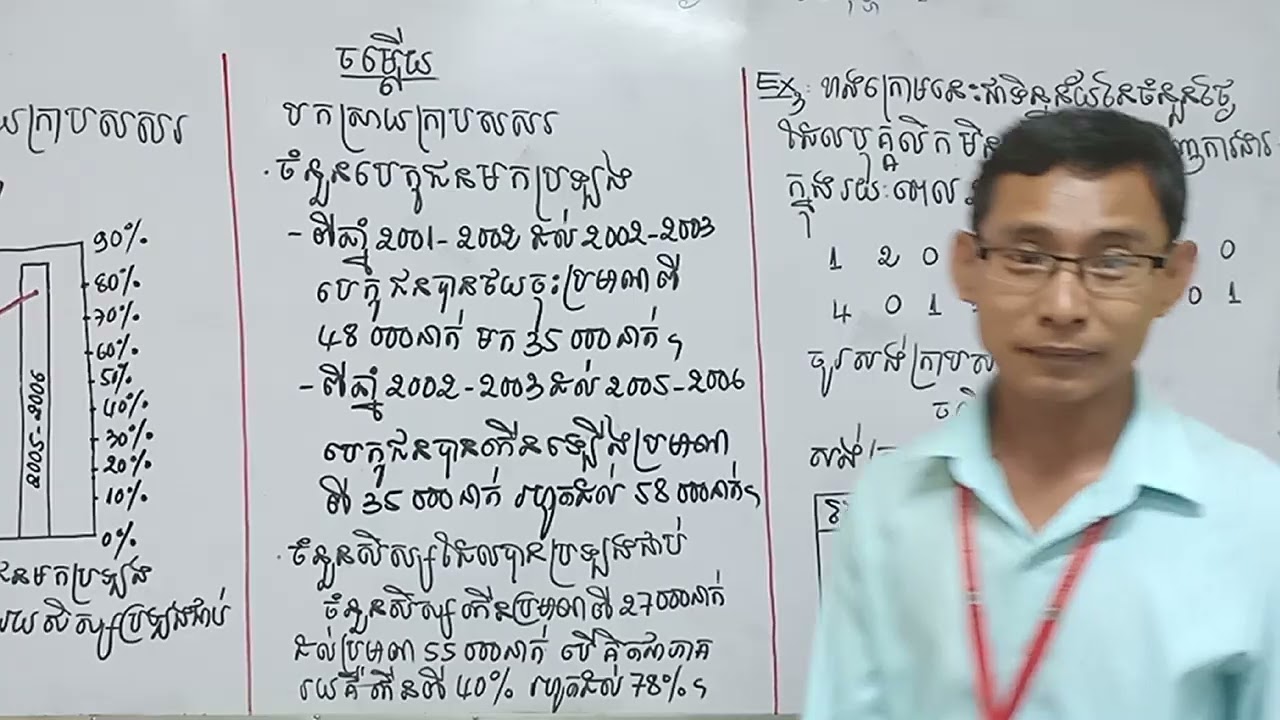 យក្រាបសសរ
90%
80%
70%
60%
50%
40%
30%
20%
10%
0%
2005-2006
ជនមកប្រឡង
រយសិស្សប្រឡងជាប់
ចម្លើយ
បកស្រាយក្រាបសសរ
· ចំនួនបេក្ខជនមកប្រឡង
- ពីឆ្នាំ 2001-2002 ដល់ 2002-2003
បេក្ខជនបានថយចុះប្រមាណពី
48 000នាក់ មក 35 000នាក់ ។
- ពីឆ្នាំ 2002-2003 ដល់ 2005-2006
បេក្ខជនបានកើនឡើងប្រមាណ
ពី 35 000នាក់ រហូតដល់ 58 000នាក់។
· ចំនួនសិស្សដែលបានប្រឡងជាប់
ចំនួនសិស្សកើនប្រមាណពី 27000នាក់
ដល់ប្រមាណ 55 000នាក់ បើគិតជាភាគ
រយគឺកើនពី 40% រហូតដល់ 78%។
Ex3: ខាងក្រោមនេះជាទិន្នន័យនៃចំនួនថ្ងៃ
ដែលបុគ្គលិកមិន ការងារ
ក្នុងរយៈពេល
1 2 0 0
4 0 1 0 1
ចូរសង់ក្រាបស
សង់